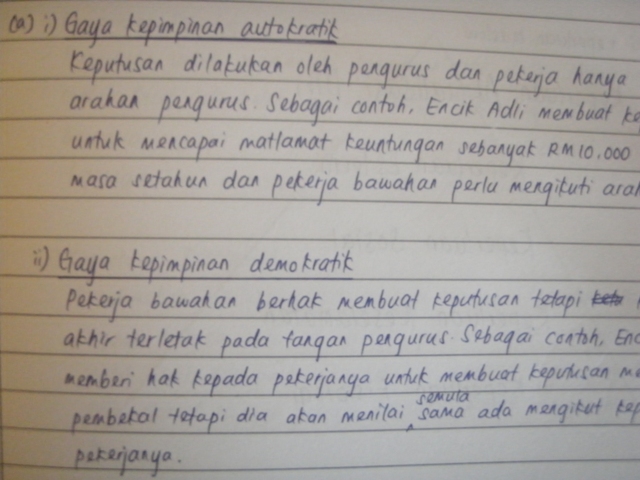 (a) i) Gaya kepimpinan autokratik
Keputusan dilakukan oleh pengurus dan pekerja hanya
arahan pengurus. Sebagai contoh, Encik Adli membuat
untuk mencapai matlamat keuntungan sebanyak RM10,000
masa setahun dan pekerja bawahan perlu mengikuti
ii) Gaya kepimpinan demokratik
Pekerja bawahan berhak membuat keputusan tetapi
akhir terletak pada tangan pengurus. Sebagai contoh,
memberi hak kepada pekerjanya untuk membuat keputusan
semula
pembekal tetapi dia akan menilai sama ada mengikut
pekerjanya.